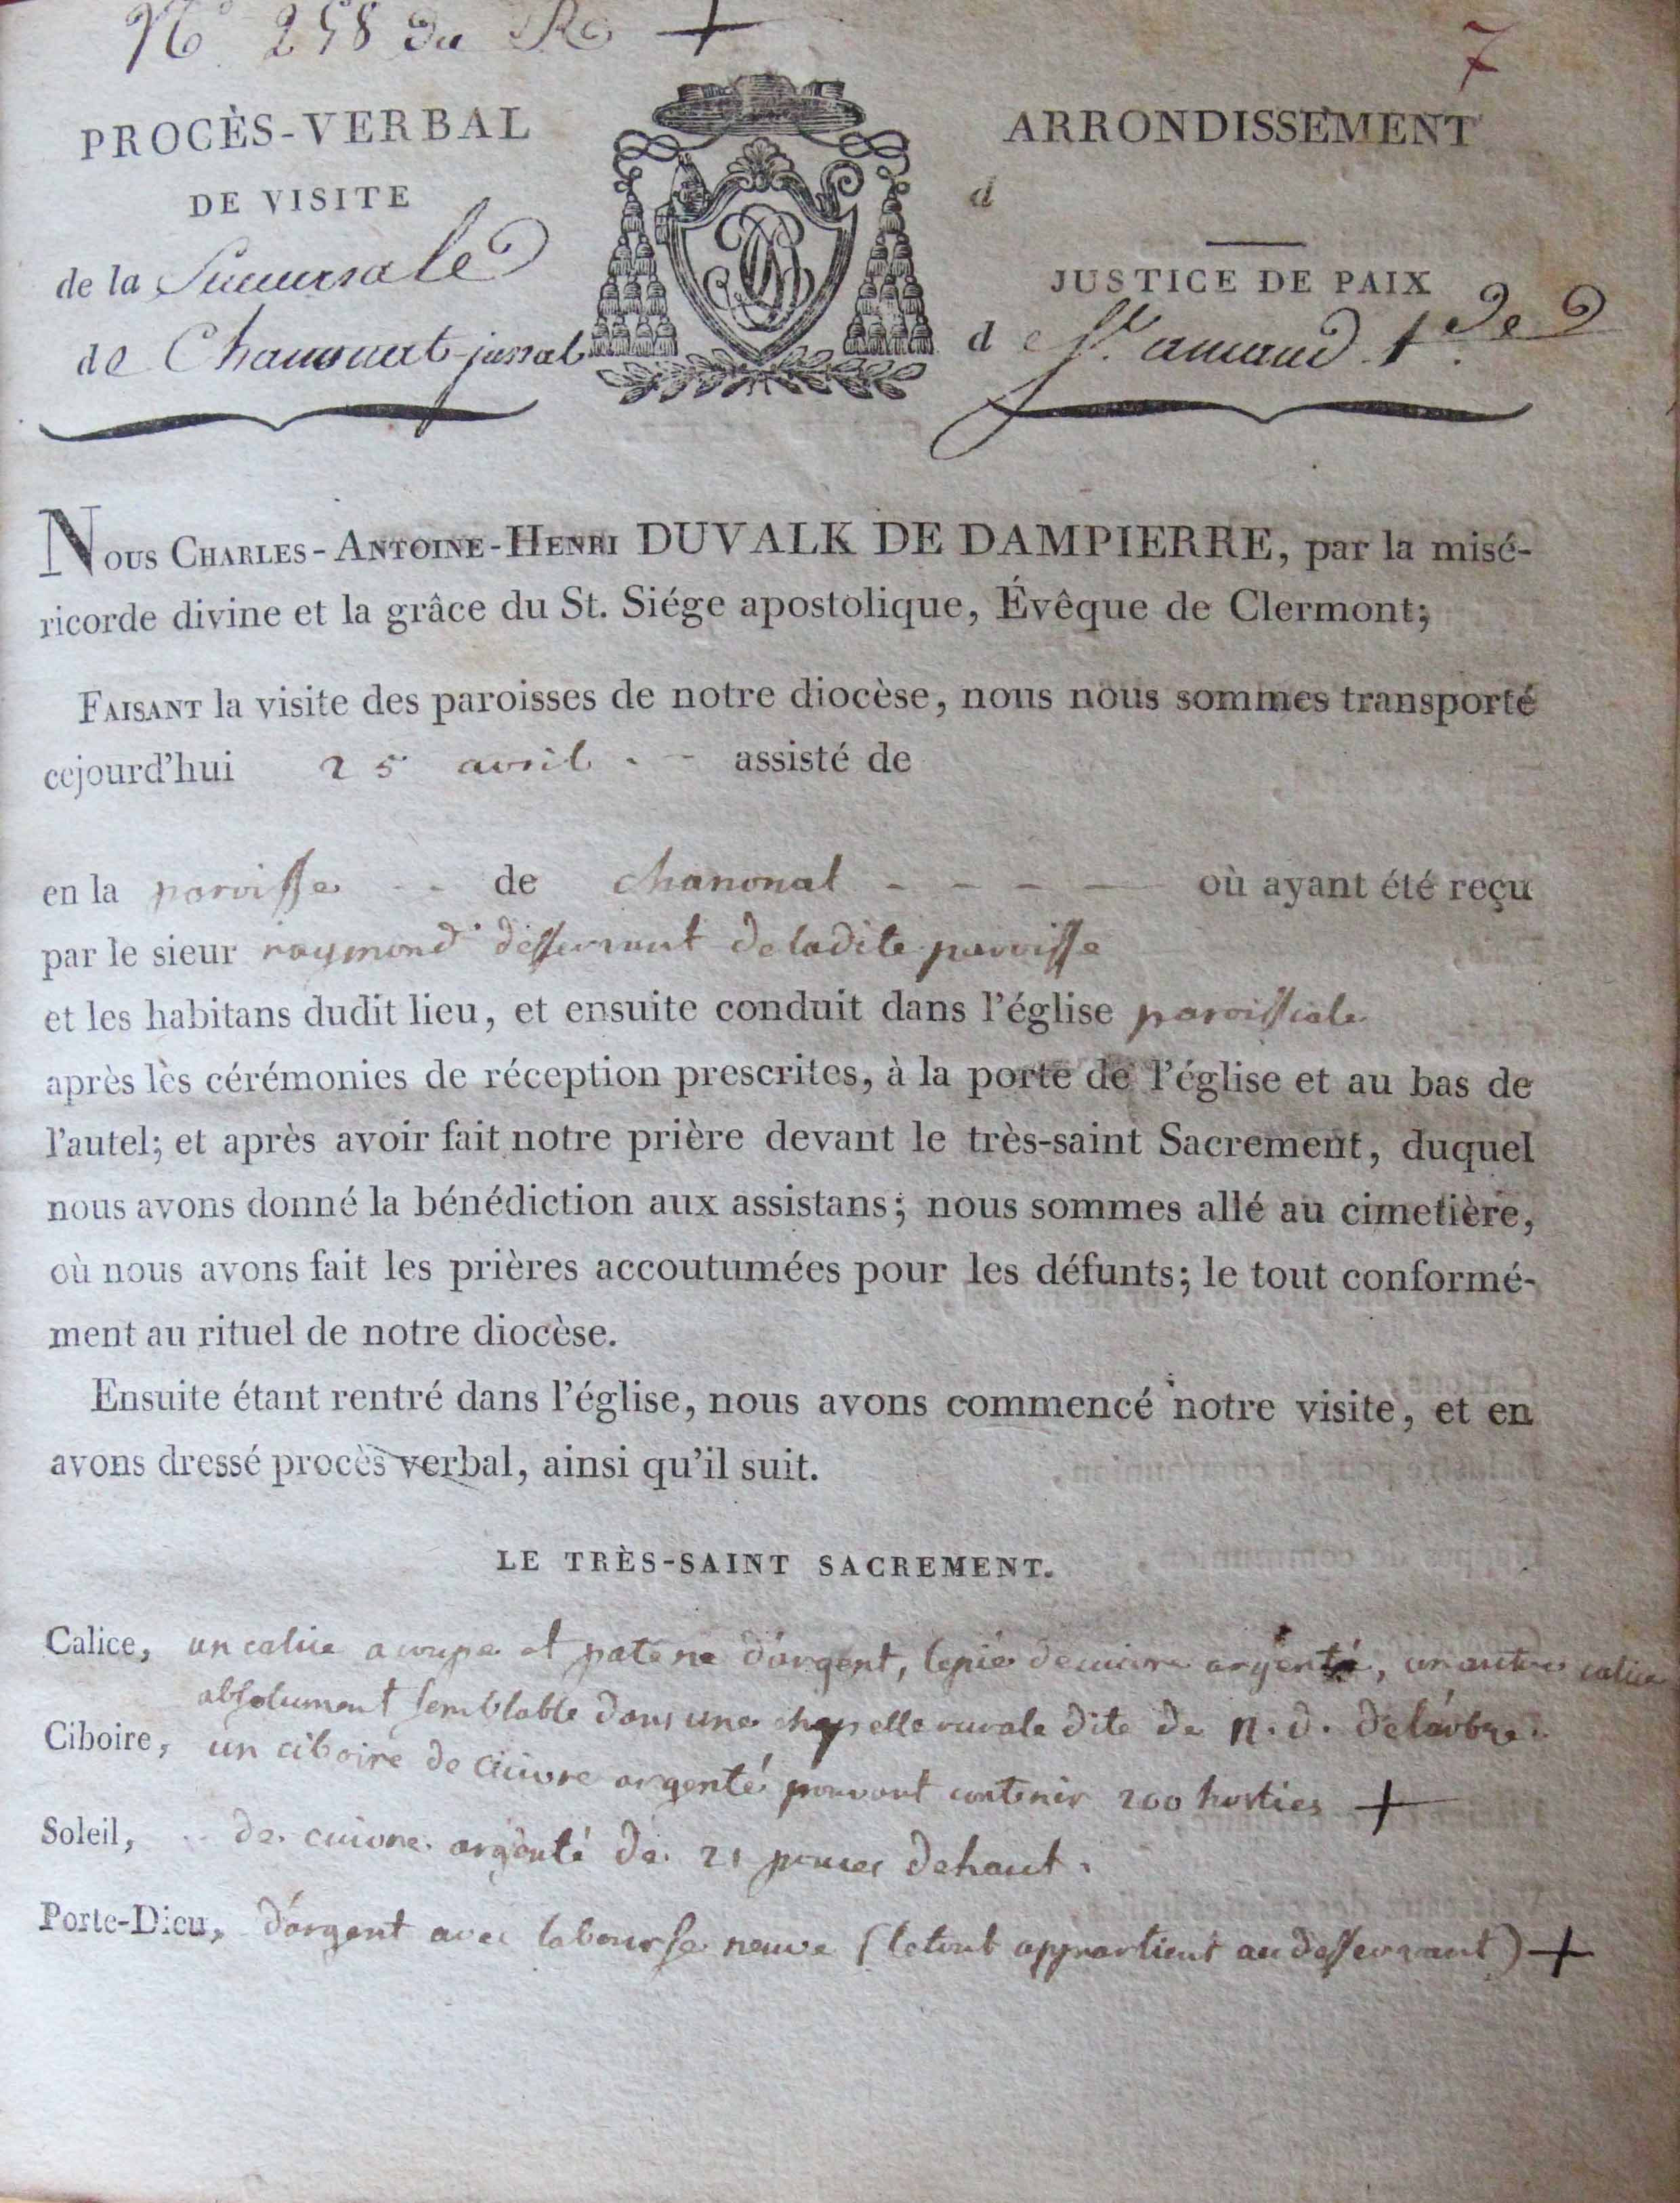 N° 258 du R +
7
PROCÈS-VERBAL
DE VISITE
de la Succursale
de Chanonat-jussat
ARRONDISSEMENT
d
JUSTICE DE PAIX
de St. amand
Nous Charles-Antoine-Henri DUVALK DE DAMPIERRE, par la misé-
ricorde divine et la grâce du St. Siége apostolique, Évêque de Clermont;
Faisant la visite des paroisses de notre diocèse, nous nous sommes transporté
cejourd'hui 25 avril . - assisté de
en la paroisse - - de chanonat - - - - où ayant été reçu
par le sieur raymond desservant de ladite paroisse
et les habitans dudit lieu, et ensuite conduit dans l'église paroissiale
après les cérémonies de réception prescrites, à la porte de l'église et au bas de
l'autel; et après avoir fait notre prière devant le très-saint Sacrement, duquel
nous avons donné la bénédiction aux assistans; nous sommes allé au cimetière,
où nous avons fait les prières accoutumées pour les défunts; le tout conformé-
ment au rituel de notre diocèse.
Ensuite étant rentré dans l'église, nous avons commencé notre visite, et en
avons dressé procès verbal, ainsi qu'il suit.
LE TRÈS-SAINT SACREMENT.
Calice, un calice a coupe et patene d'argent, le pié de cuivre argenté, un autre calice
absolument semblable dans une chapelle rurale dite de n. d. de l'arbre.
Ciboire, un ciboire de cuivre argenté pouvant contenir 200 hosties +
Soleil, de cuivre argenté de 21 pouces de haut.
Porte-Dieu, d'argent avec la bourse neuve (le tout appartient au desservant) +